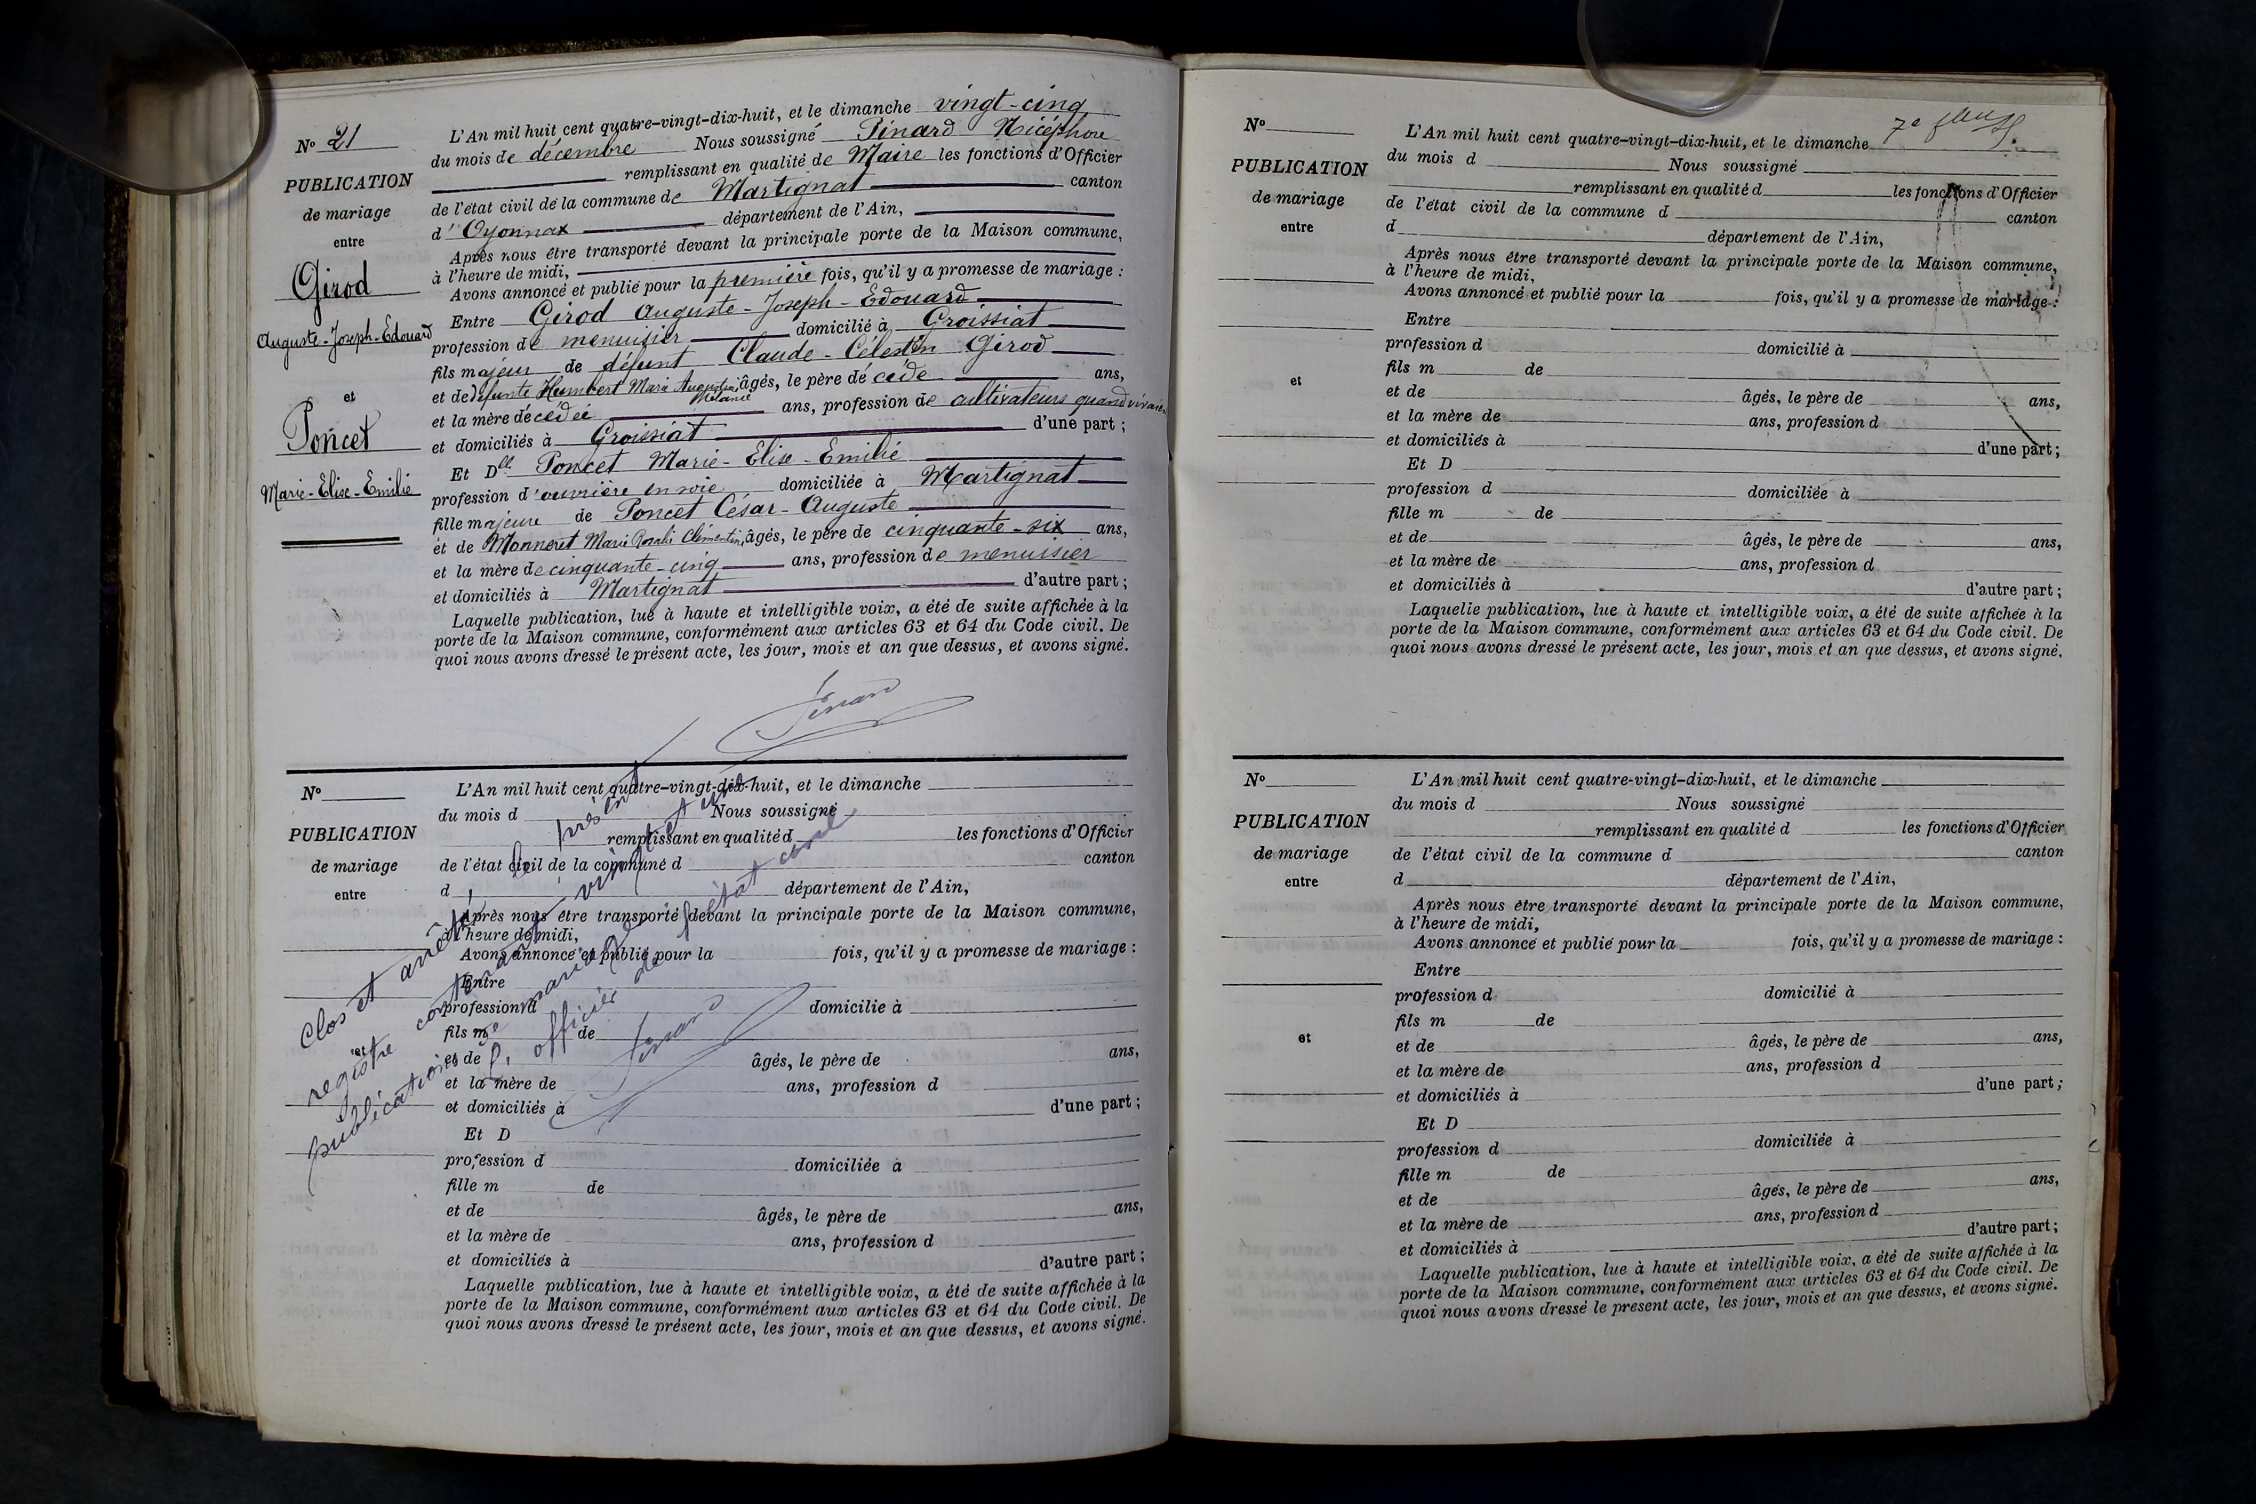 Nº 21
PUBLICATION
de mariage
entre
Girod
Auguste-Joseph-Edouard
et
Poncet
Marie-Elise-Emilie
L'An mil huit cent quatre-vingt-dix-huit, et le dimanche vingt-cinq
du mois de décembre Nous soussigné Pinard Nicéphore
remplissant en qualité de Maire les fonctions d'Officier
de l'état civil de la commune de Martignat canton
d'Oyonnax département de l'Ain,
Après nous être transporté devant la principale porte de la Maison commune,
à l'heure de midi,
Avons annoncé et publié pour la première fois, qu'il y a promesse de mariage :
Entre Girod Auguste-Joseph-Edouard
profession de menuisier domicilié à Groissiat
fils majeur de défunt Claude-Célestin Girod
et de défunte Humbert Marie Augustine Mélanie, âgés, le père décédé ans,
et la mère décédée ans, profession de cultivateurs quand vivaient
et domiciliés à Groissiat d'une part ;
Et Dlle Poncet Marie-Elise-Emilie
profession d'ouvrière en soie domiciliée à Martignat
fille majeure de Poncet César-Auguste
et de Monneret Marie Rosalie Clémentine, âgés, le père de cinquante-six ans,
et la mère de cinquante-cinq ans, profession de menuisier
et domiciliés à Martignat d'autre part ;
Laquelle publication, lue à haute et intelligible voix, a été de suite affichée à la
porte de la Maison commune, conformément aux articles 63 et 64 du Code civil. De
quoi nous avons dressé le présent acte, les jour, mois et an que dessus, et avons signé.
Pinard
Nº
PUBLICATION
de mariage
entre
et
L'An mil huit cent quatre-vingt-dix-huit, et le dimanche
du mois d Nous soussigné
remplissant en qualité d les fonctions d'Officier
de l'état civil de la commune d canton
d département de l'Ain,
Après nous être transporté devant la principale porte de la Maison commune,
à l'heure de midi,
Avons annoncé et publié pour la fois, qu'il y a promesse de mariage :
Entre
profession d domicilié à
fils m de
et de âgés, le père de ans,
et la mère de ans, profession d
et domiciliés à d'une part ;
Et D
profession d domiciliée à
fille m de
et de âgés, le père de ans,
et la mère de ans, profession d
et domiciliés à d'autre part ;
Laquelle publication, lue à haute et intelligible voix, a été de suite affichée à la
porte de la Maison commune, conformément aux articles 63 et 64 du Code civil. De
quoi nous avons dressé le présent acte, les jour, mois et an que dessus, et avons signé.
Clos et arrêté le présent
registre contenant vingt et une
publications de mariage
L'officier de l'état civil
Pinard
7e
Nº
PUBLICATION
de mariage
entre
et
L'An mil huit cent quatre-vingt-dix-huit, et le dimanche
du mois d Nous soussigné
remplissant en qualité d les fonctions d'Officier
de l'état civil de la commune d canton
d département de l'Ain,
Après nous être transporté devant la principale porte de la Maison commune,
à l'heure de midi,
Avons annoncé et publié pour la fois, qu'il y a promesse de mariage :
Entre
profession d domicilié à
fils m de
et de âgés, le père de ans,
et la mère de ans, profession d
et domiciliés à d'une part ;
Et D
profession d domiciliée à
fille m de
et de âgés, le père de ans,
et la mère de ans, profession d
et domiciliés à d'autre part ;
Laquelle publication, lue à haute et intelligible voix, a été de suite affichée à la
porte de la Maison commune, conformément aux articles 63 et 64 du Code civil. De
quoi nous avons dressé le présent acte, les jour, mois et an que dessus, et avons signé.
Nº
PUBLICATION
de mariage
entre
et
L'An mil huit cent quatre-vingt-dix-huit, et le dimanche
du mois d Nous soussigné
remplissant en qualité d les fonctions d'Officier
de l'état civil de la commune d canton
d département de l'Ain,
Après nous être transporté devant la principale porte de la Maison commune,
à l'heure de midi,
Avons annoncé et publié pour la fois, qu'il y a promesse de mariage :
Entre
profession d domicilié à
fils m de
et de âgés, le père de ans,
et la mère de ans, profession d
et domiciliés à d'une part ;
Et D
profession d domiciliée à
fille m de
et de âgés, le père de ans,
et la mère de ans, profession d
et domiciliés à d'autre part ;
Laquelle publication, lue à haute et intelligible voix, a été de suite affichée à la
porte de la Maison commune, conformément aux articles 63 et 64 du Code civil. De
quoi nous avons dressé le present acte, les jour, mois et an que dessus, et avons signé.